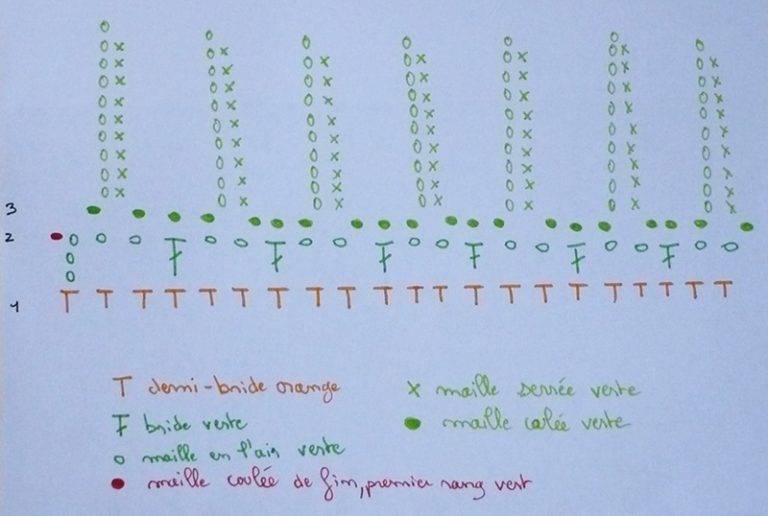 3
2
1
T demi-bride orange
x maille serrée verte
bride verte
maille coulée verte
o maille en l'air verte
maille coulée de fin, premier rang vert